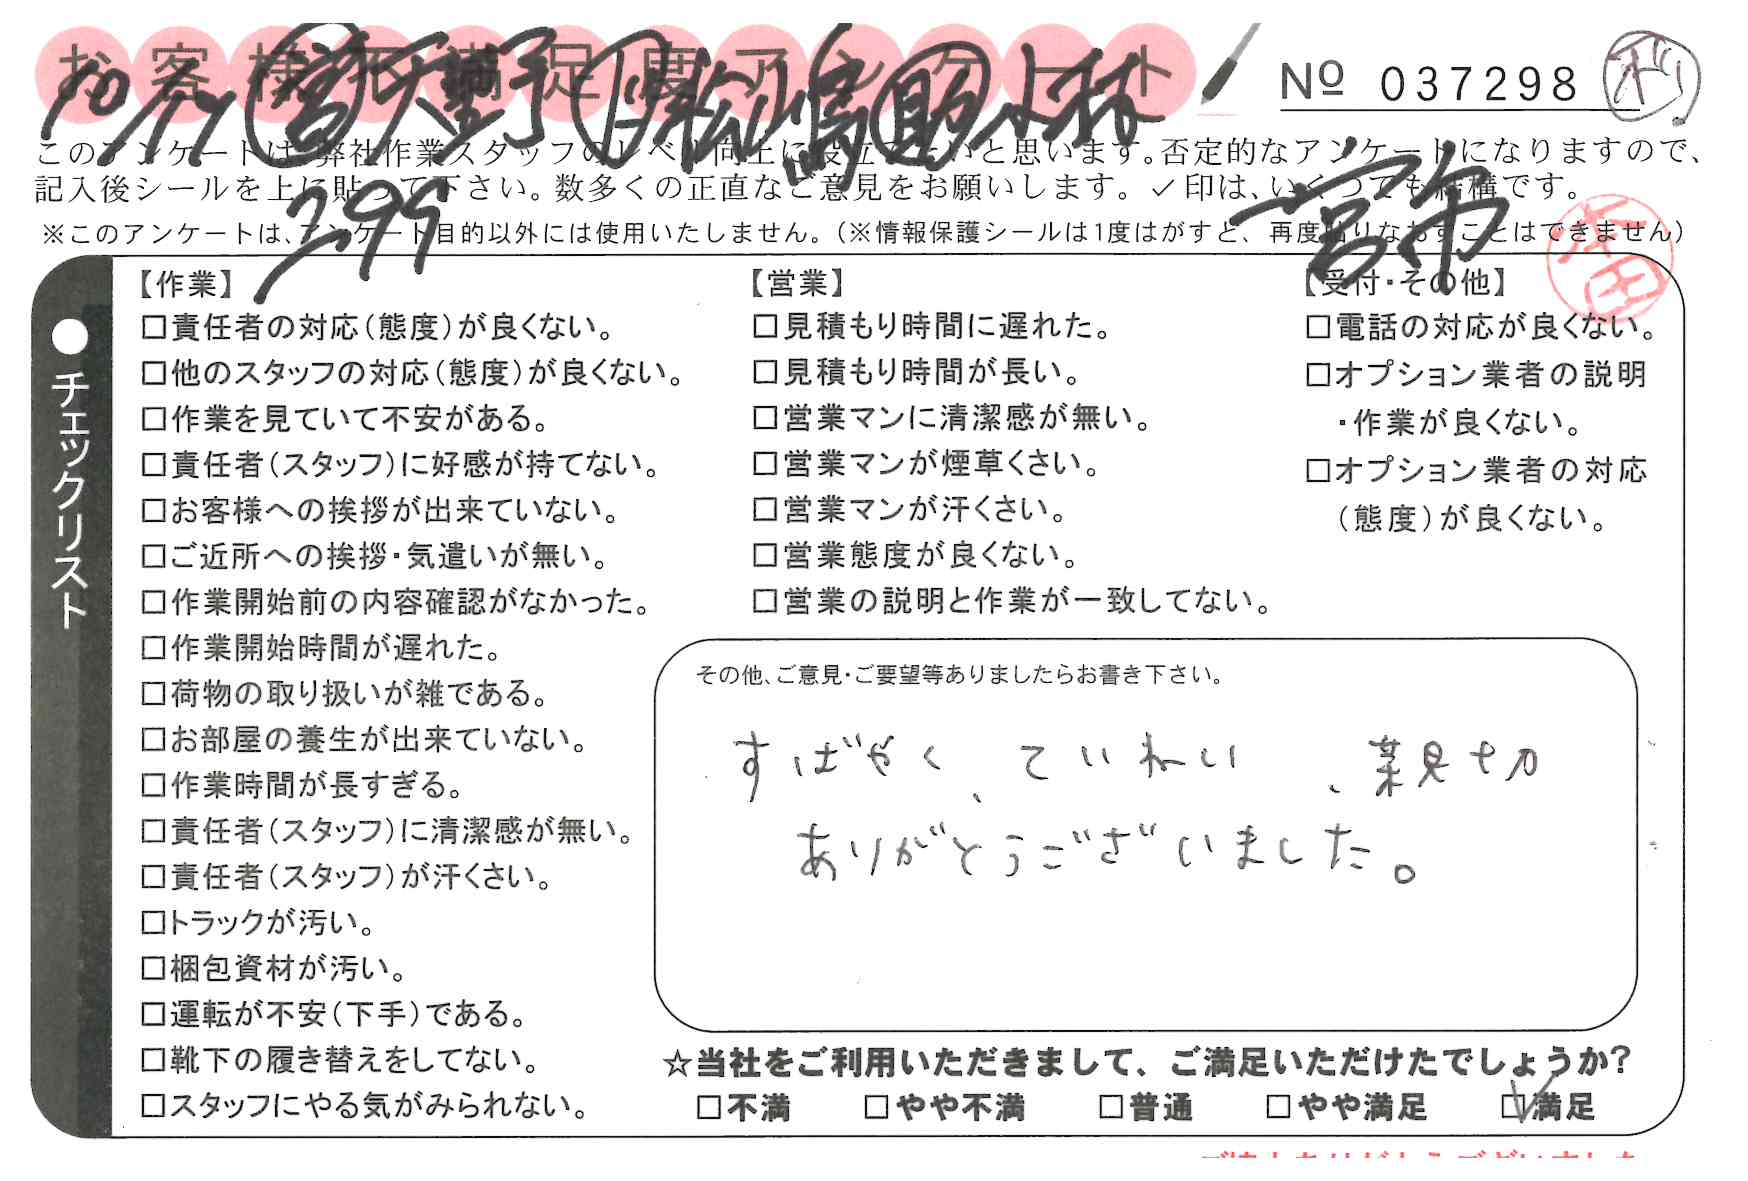 お客様不満足度アンケート
№ 037298
このアンケートは、弊社作業スタッフのレベル向上に役立てたいと思います。否定的なアンケートになりますので、
記入後シールを上に貼って下さい。数多くの正直なご意見をお願いします。✓印は、いくつでも結構です。
※このアンケートは、アンケート目的以外には使用いたしません。(※情報保護シールは1度はがすと、再度貼りなおすことはできません)
299
●チェックリスト
【作業】
□責任者の対応(態度)が良くない。
□他のスタッフの対応(態度)が良くない。
□作業を見ていて不安がある。
□責任者(スタッフ)に好感が持てない。
□お客様への挨拶が出来ていない。
□ご近所への挨拶・気遣いが無い。
□作業開始前の内容確認がなかった。
□作業開始時間が遅れた。
□荷物の取り扱いが雑である。
□お部屋の養生が出来ていない。
□作業時間が長すぎる。
□責任者(スタッフ)に清潔感が無い。
□責任者(スタッフ)が汗くさい。
□トラックが汚い。
□梱包資材が汚い。
□運転が不安(下手)である。
□靴下の履き替えをしてない。
□スタッフにやる気がみられない。
【営業】
□見積もり時間に遅れた。
□見積もり時間が長い。
□営業マンに清潔感が無い。
□営業マンが煙草くさい。
□営業マンが汗くさい。
□営業態度が良くない。
□営業の説明と作業が一致してない。
【受付・その他】
□電話の対応が良くない。
□オプション業者の説明
・作業が良くない。
□オプション業者の対応
(態度)が良くない。
その他、ご意見・ご要望等ありましたらお書き下さい。
すばやく、ていねい、親切
ありがとうございました。
☆当社をご利用いただきまして、ご満足いただけたでしょうか?
□不満 □やや不満 □普通 □やや満足 ☑満足